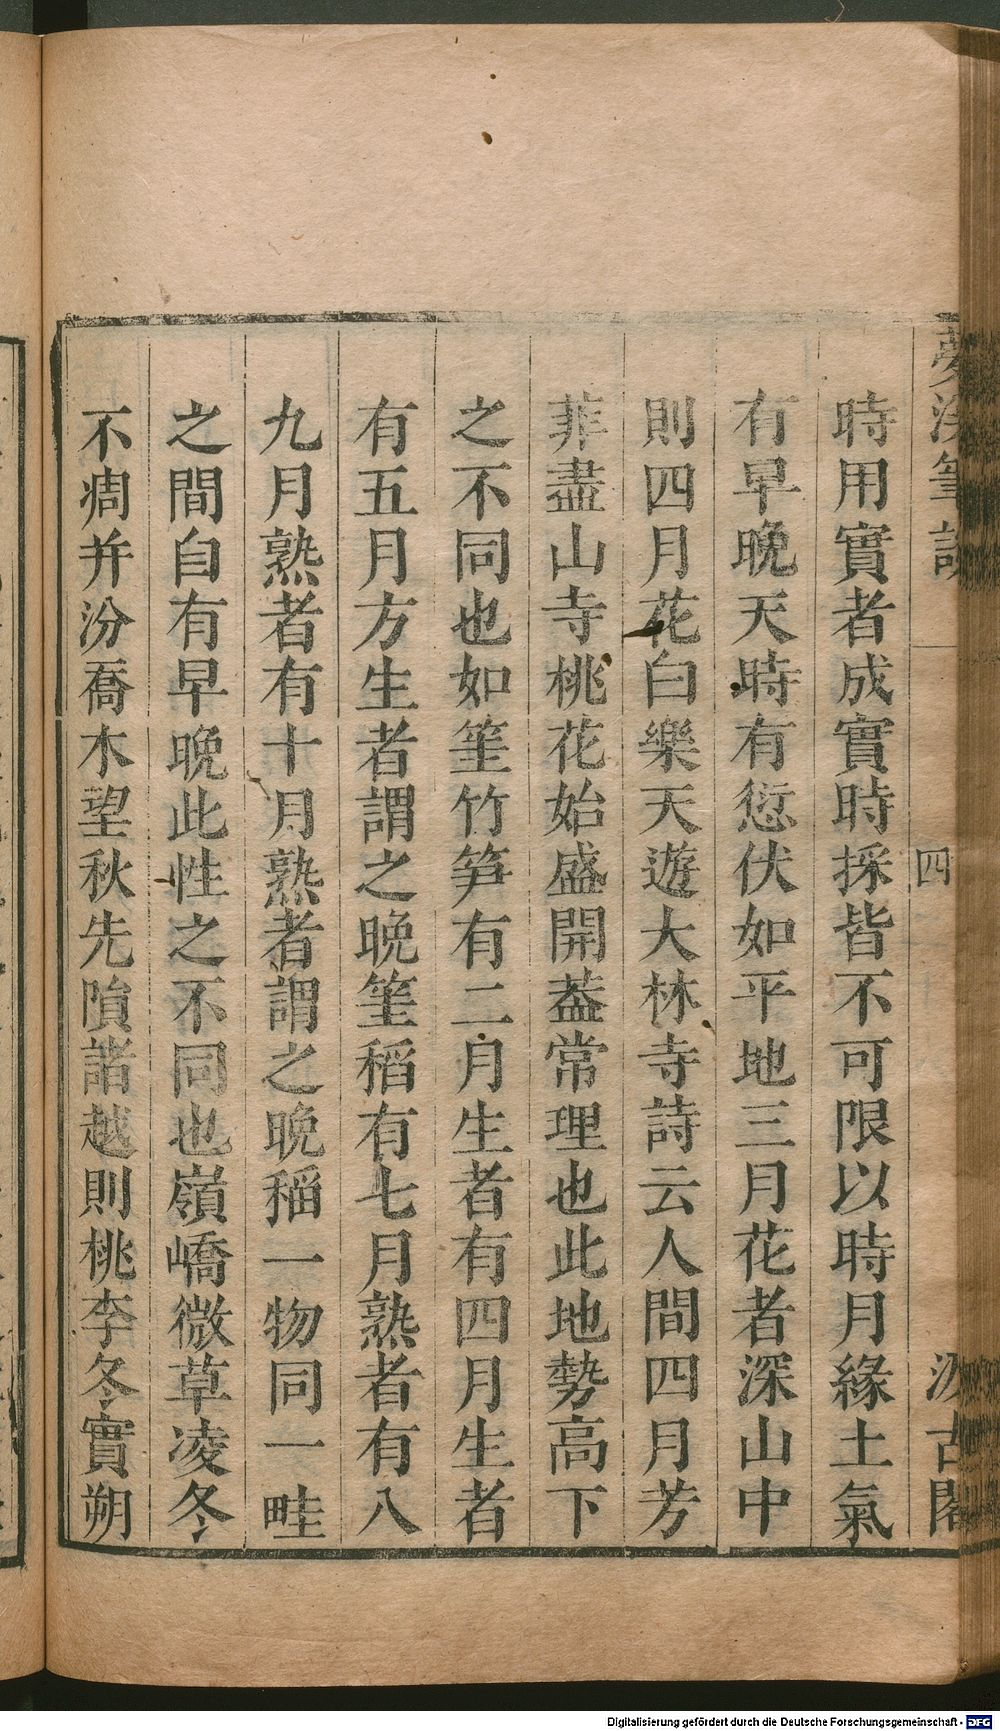 夢溪筆談 四 汲古閣
時用實者成實時採皆不可限以時月緣土氣
有早晚天時有愆伏如平地三月花者深山中
則四月花白樂天遊大林寺詩云人間四月芳
菲盡山寺桃花始盛開葢常理也此地勢高下
之不同也如筀竹笋有二月生者有四月生者
有五月方生者謂之晚筀稻有七月熟者有八
九月熟者有十月熟者謂之晚稻一物同一畦
之間自有早晚此性之不同也嶺嶠微草凌冬
不凋并汾喬木望秋先隕諸越則桃李冬實朔
Digitalisierung gefördert durch die Deutsche Forschungsgemeinschaft - DFG